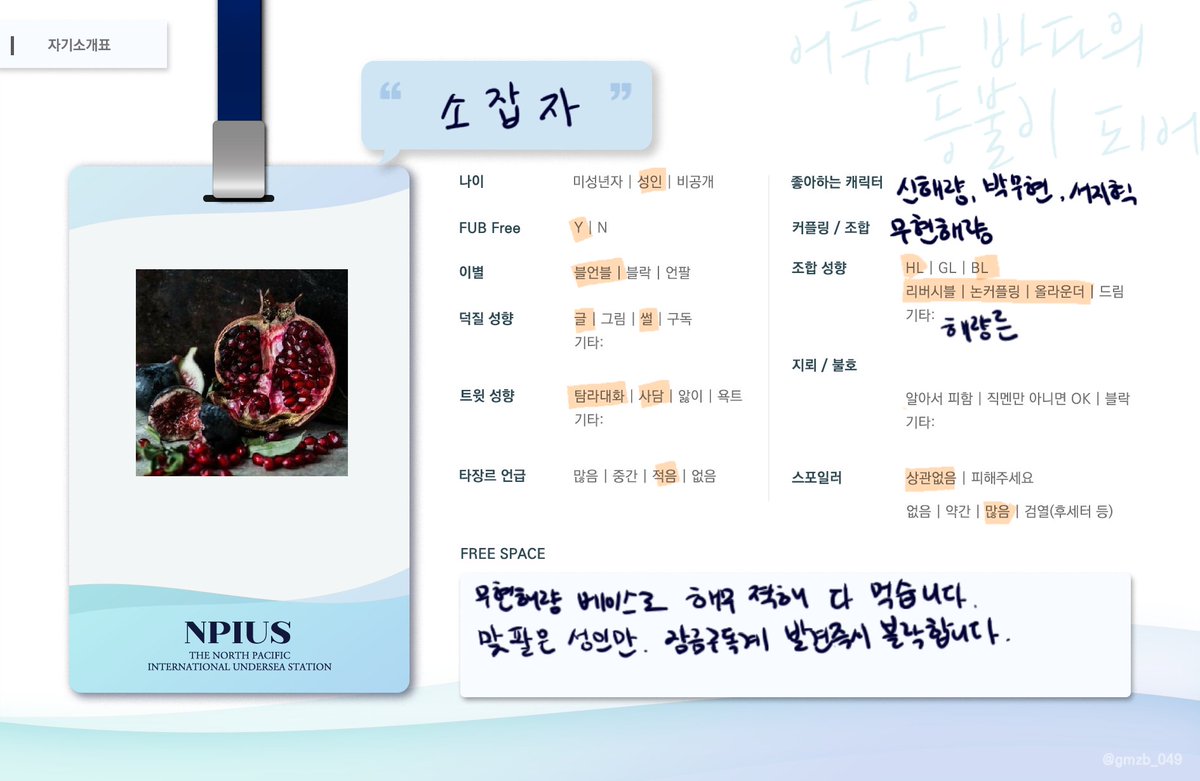 자기소개표
어두운 바다의
등불이 되어
“ 소잡자 ”
나이 미성년자 | 성인 | 비공개
FUB Free Y | N
이별 블언블 | 블락 | 언팔
덕질 성향 글 | 그림 | 썰 | 구독
기타:
트윗 성향 탐라대화 | 사담 | 앓이 | 욕트
기타:
타장르 언급 많음 | 중간 | 적음 | 없음
좋아하는 캐릭터 신해량, 박무현, 서지혁
커플링 / 조합 무현해량
조합 성향 HL | GL | BL
리버시블 | 논커플링 | 올라운더 | 드림
기타: 해량른
지뢰 / 불호
알아서 피함 | 직멘만 아니면 OK | 블락
기타:
스포일러 상관없음 | 피해주세요
없음 | 약간 | 많음 | 검열(후세터 등)
FREE SPACE
무현해량 베이스로 해무 적해 다 먹습니다.
맞팔은 성인만. 잠금구독계 발견즉시 블락합니다.
NPIUS
THE NORTH PACIFIC
INTERNATIONAL UNDERSEA STATION
@gmzb_049